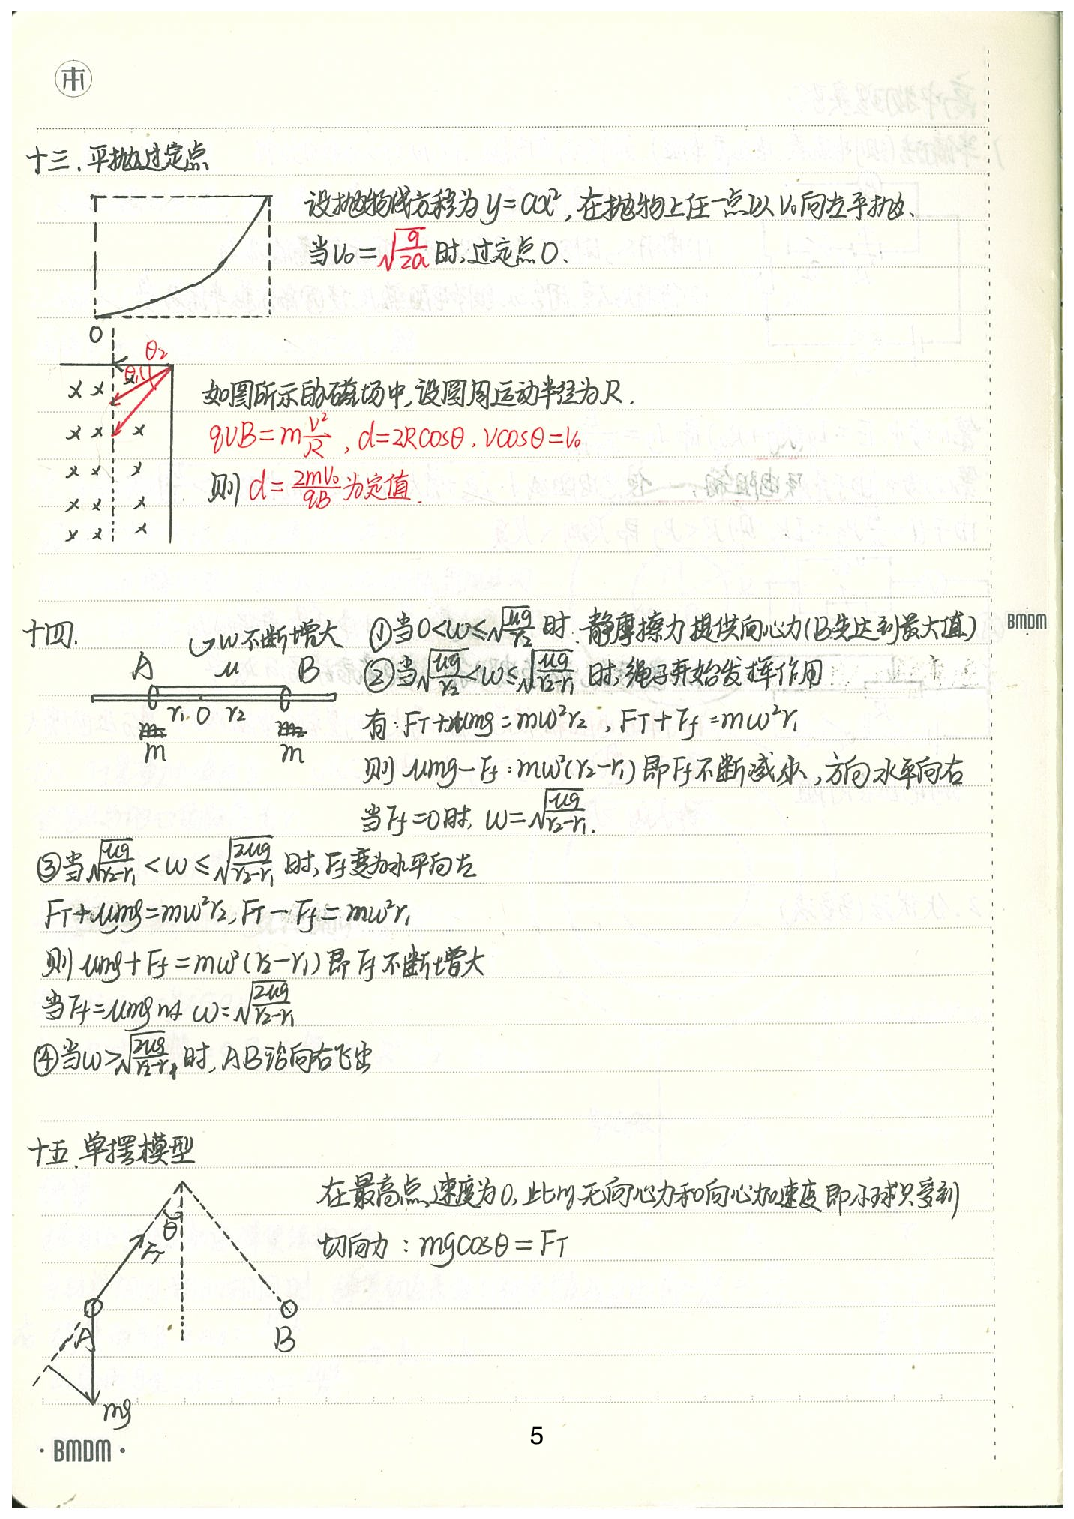 市
十三、平抛过定点
设抛物线方程为y=ax², 在抛物上任一点以V₀向左平抛、
当V₀=√(g/2a)时,过定点O.
O
θ₂
θ₁
如图所示的磁场中,设圆周运动半径为R.
qVB=m V²/R , d=2Rcosθ , Vcosθ=V₀
则 d=2mV₀/qB 为定值.
十四.
W不断增大
A μ B
r₁ O r₂
m m
①当0<W≤√(μg/r₂)时.静摩擦力提供向心力(B先达到最大值)
②当√(μg/r₂)<W≤√(μg/(r₂-r₁))时,绳子开始发挥作用
有:F_T+μmg=mω²r₂ , F_T+F_f=mω²r₁
则 μmg-F_f:mω²(r₂-r₁)即F_f不断减小,方向水平向右
当F_f=0时, W=√(μg/(r₂-r₁)).
③当√(μg/(r₂-r₁))<W≤√(2μg/(r₂-r₁))时,F_f变为水平向左
F_T+μmg=mω²r₂,F_T-F_f=mω²r₁
则 μmg+F_f=mω²(r₂-r₁)即F_f不断增大
当F_f=μmg时 W=√(2μg/(r₂-r₁))
④当W>√(2μg/(r₂-r₁))时,AB沿向右飞出
十五.单摆模型
在最高点,速度为0,此时无向心力和向心加速度即小球只受到
切向力:mgcosθ=F_T
θ
F_T
A B
mg
BMDM
·BMDM·
5